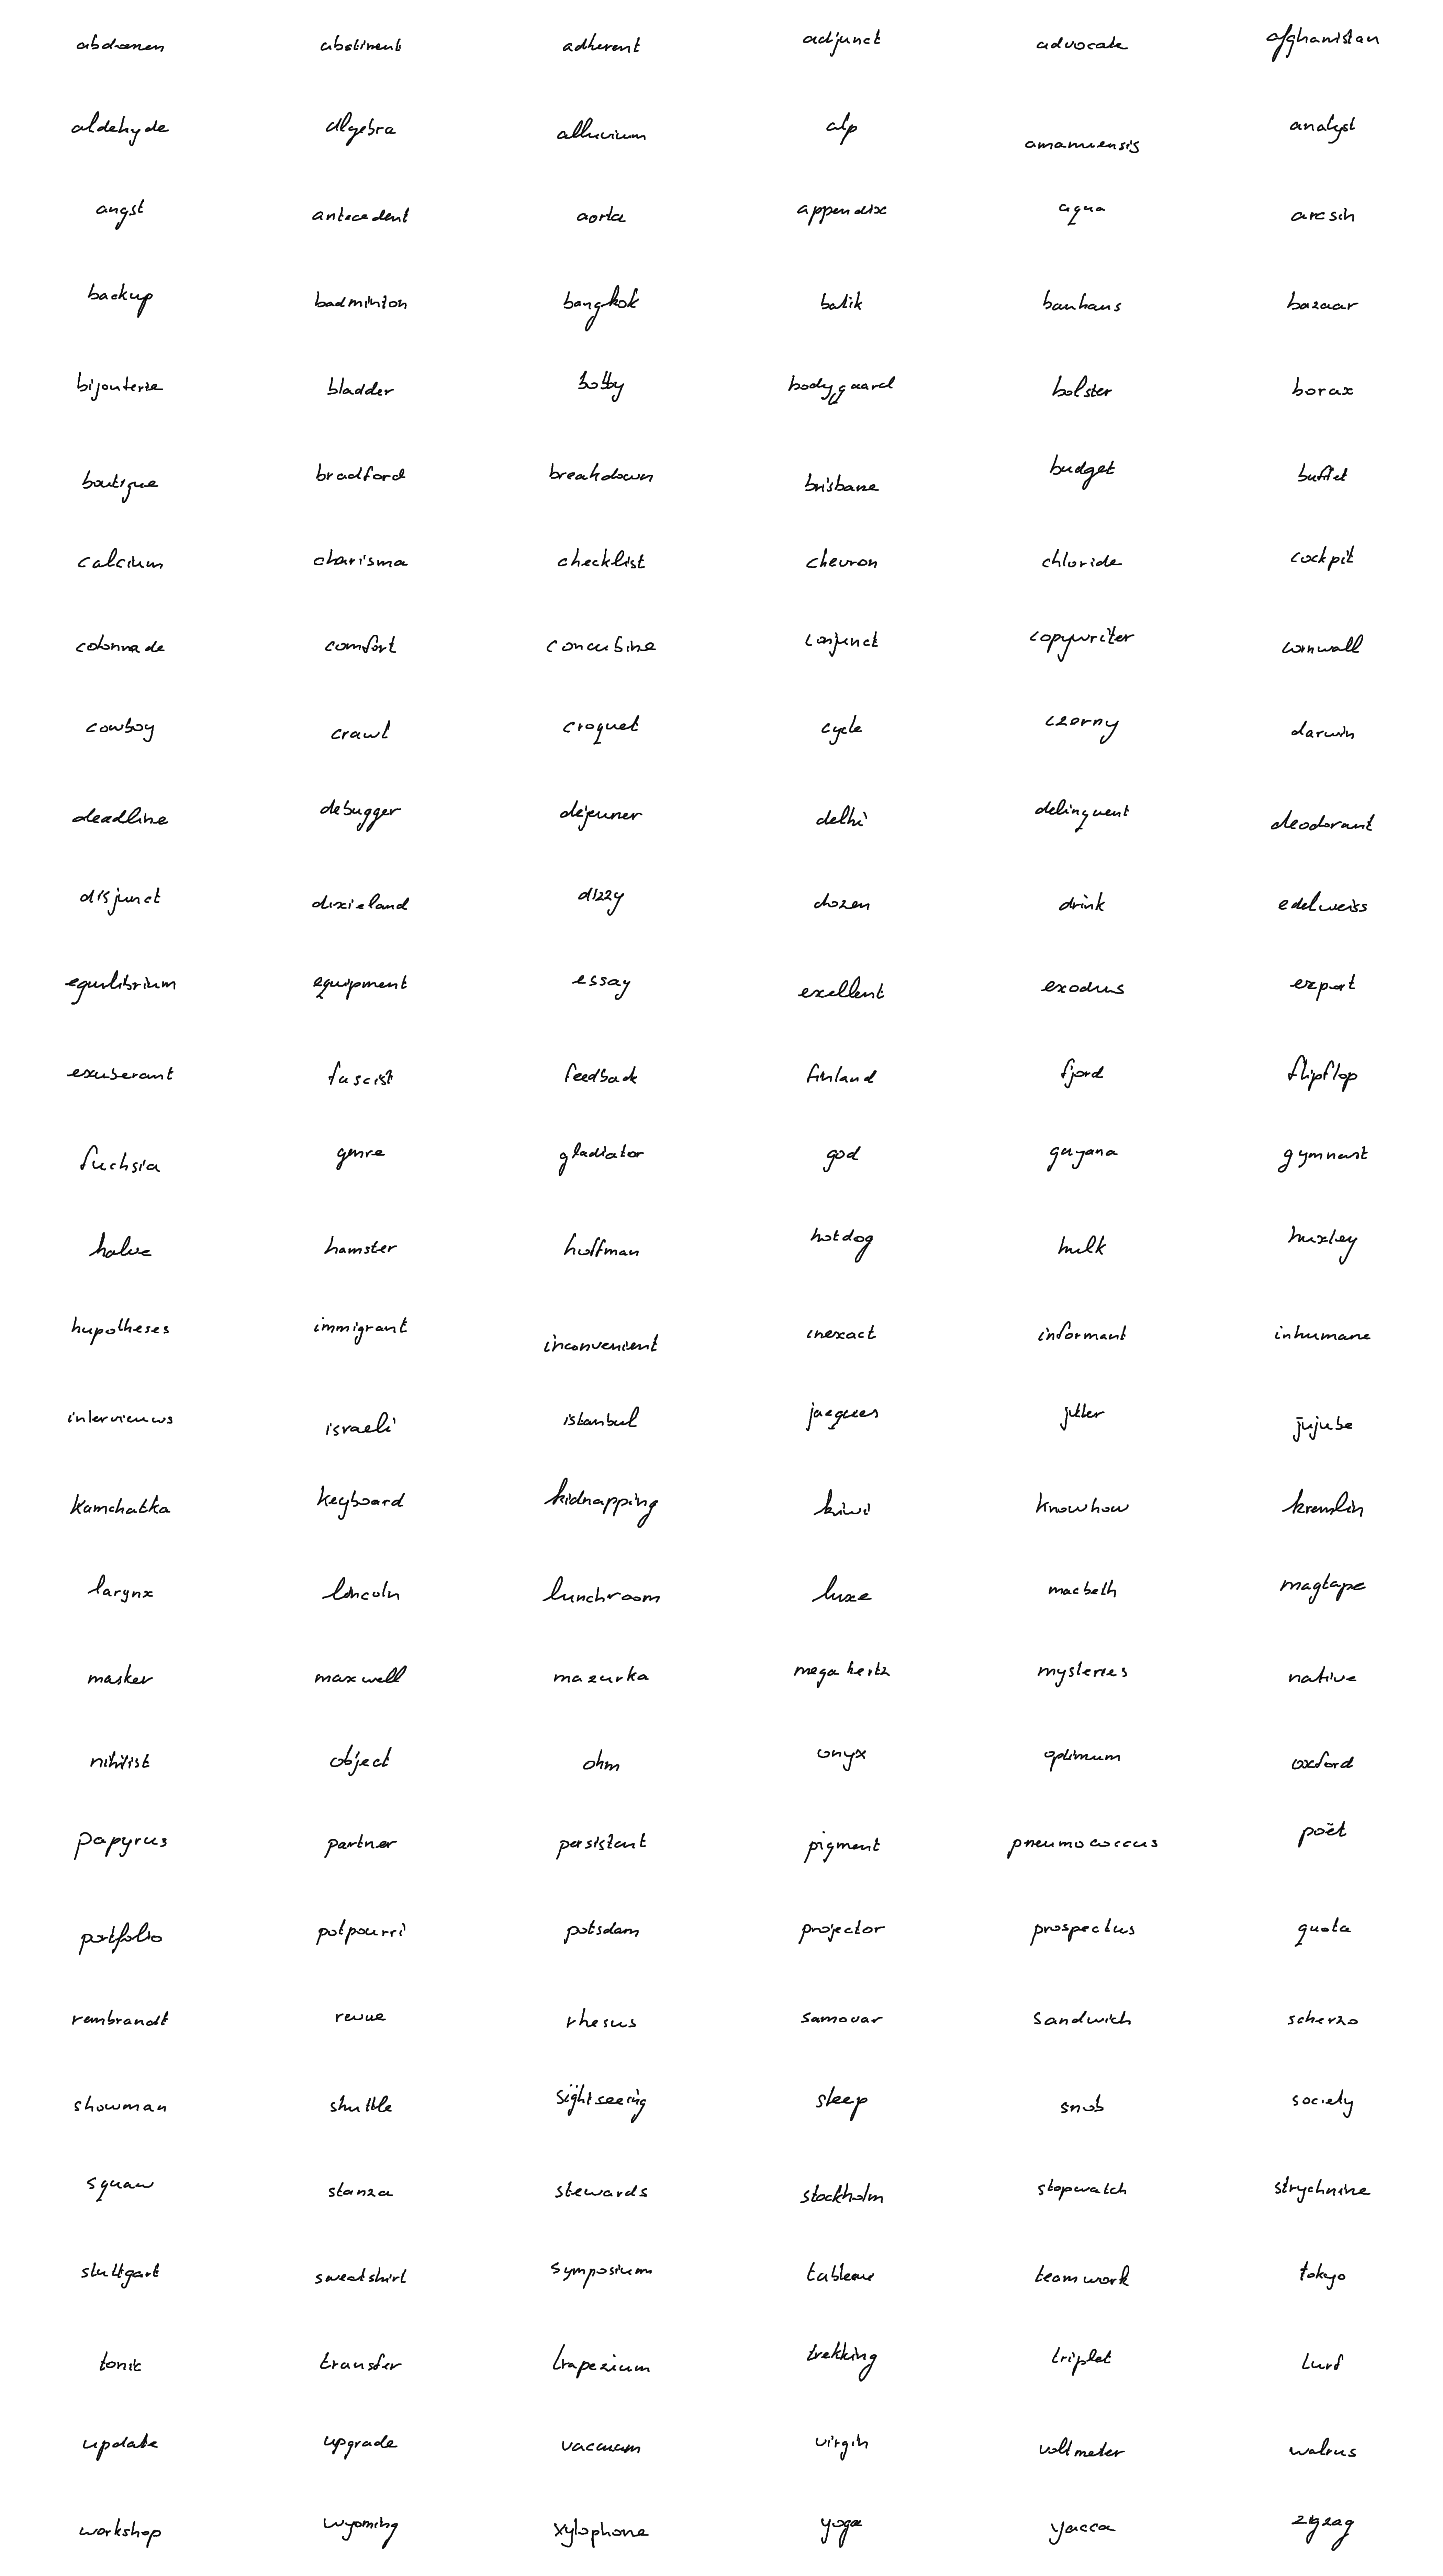 abdomen abstinent adherent adjunct advocate afghanistan
aldehyde algebra alluvium alp amanuensis analyst
angst antecedent aorta appendix aqua arcsin
backup badminton bangkok batik bauhaus bazaar
bijouterie bladder bobby bodyguard bolster borax
boutique bradford breakdown brisbane budget buffet
calcium charisma checklist chevron chloride cockpit
colonnade comfort concubine conjunct copywriter cornwall
cowboy crawl croquet cycle czerny darwin
deadline debugger dejeuner delhi delinquent deodorant
disjunct dixieland dizzy dozen drink edelweiss
equilibrium equipment essay exellent exodus export
exuberant fascist feedback finland fjord flipflop
fuchsia genre gladiator god guyana gymnast
halve hamster hoffman hotdog hulk huxley
hupotheses immigrant inconvenient inexact informant inhumane
interviewws israeli istanbul jacques jitter jujube
kamchatka keyboard kidnapping kiwi knowhow kremlin
larynx lincoln lunchroom luxe macbeth magtape
masker maxwell mazurka megahertz mysteries native
nihilist object ohm onyx optimum oxford
papyrus partner persistent pigment pneumococcus poët
portfolio potpourri potsdam projector prospectus quota
rembrandt revue rhesus samovar sandwich scherzo
showman shuttle sightseeing sleep snob society
squaw stanza stewards stockholm stopwatch strychnine
stuttgart sweatshirt symposium tableau teamwork tokyo
tonic transfer trapezium trekking triplet turf
update upgrade vacuum virgin voltmeter walrus
workshop wyoming xylophone yoga yucca zigzag